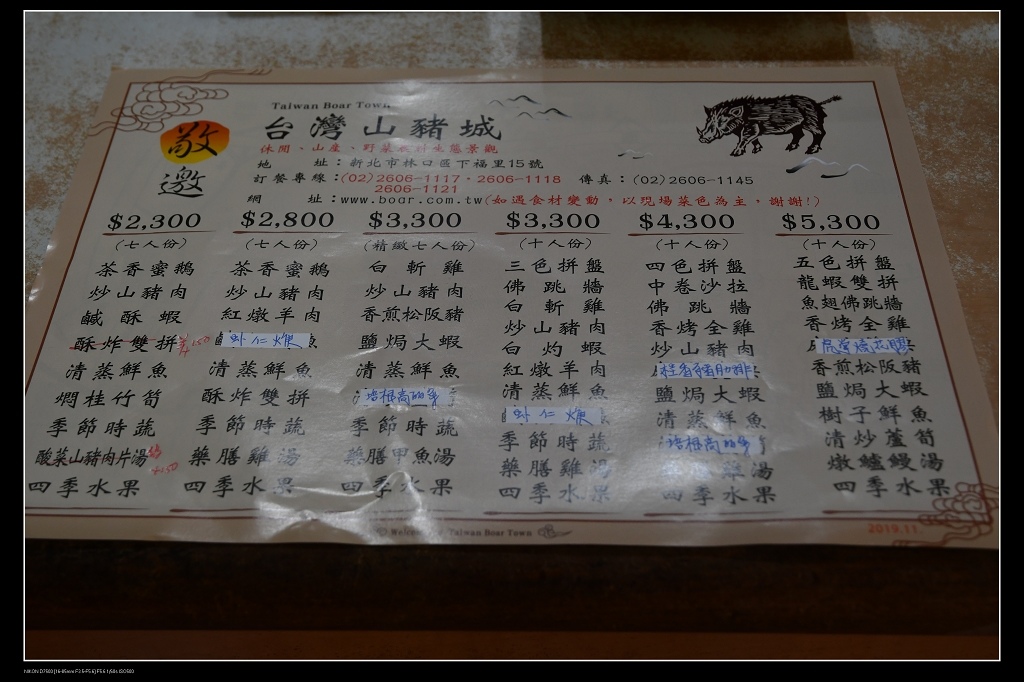 Taiwan Boar Town
敬邀
台灣山豬城
休閒、山產、野菜 生態景觀
地 址：新北市林口區下福里15號
訂餐專線：(02)2606-1117・2606-1118 傳真：(02)2606-1145
2606-1121
網 址：www.boar.com.tw(如遇食材變動，以現場菜色為主，謝謝!)
$2,300
(七人份)
茶香蜜鵝
炒山豬肉
鹹酥蝦
酥炸雙拼
清蒸鮮魚
燜桂竹筍
季節時蔬
酸菜山豬肉片湯
四季水果
$2,800
(七人份)
茶香蜜鵝
炒山豬肉
紅燉羊肉
清蒸鮮魚
酥炸雙拼
季節時蔬
藥膳雞湯
四季水果
$3,300
(精緻七人份)
白斬雞
炒山豬肉
香煎松阪豬
鹽焗大蝦
清蒸鮮魚
季節時蔬
藥膳甲魚湯
四季水果
$3,300
(十人份)
三色拼盤
佛跳牆
白斬雞
炒山豬肉
白灼蝦
紅燉羊肉
清蒸鮮魚
季節時蔬
藥膳雞湯
四季水果
$4,300
(十人份)
四色拼盤
中卷沙拉
佛跳牆
香烤全雞
炒山豬肉
鹽焗大蝦
清蒸鮮魚
四季水果
$5,300
(十人份)
五色拼盤
龍蝦雙拼
魚翅佛跳牆
香烤全雞
香煎松阪豬
鹽焗大蝦
樹子鮮魚
清炒蘆筍
燉鱸鰻湯
四季水果
Taiwan Boar Town
2019.11